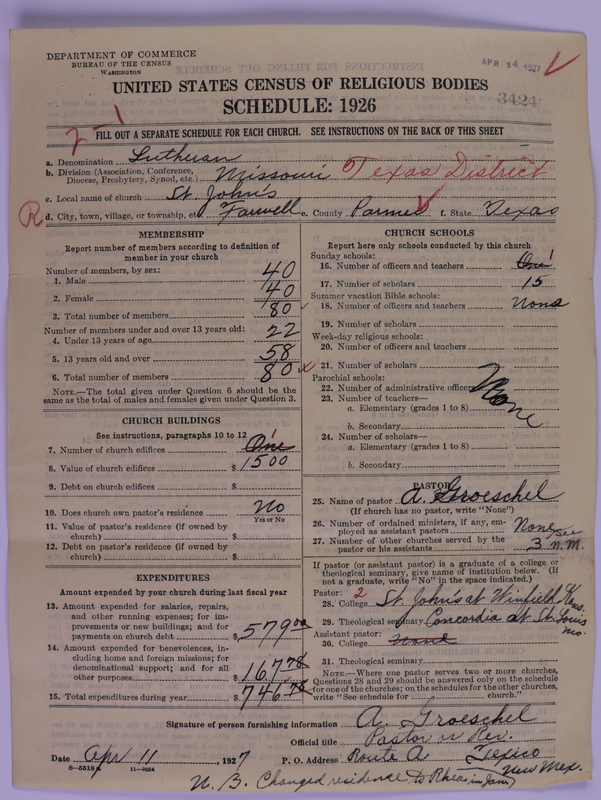 DEPARTMENT OF COMMERCE
BUREAU OF THE CENSUS
WASHINGTON
APR 14 1927
UNITED STATES CENSUS OF RELIGIOUS BODIES
SCHEDULE: 1926
3424
2-1
FILL OUT A SEPARATE SCHEDULE FOR EACH CHURCH. SEE INSTRUCTIONS ON THE BACK OF THIS SHEET
a. Denomination Lutheran
b. Division (Association, Conference, Diocese, Presbytery, Synod, etc.) Missouri Texas District
c. Local name of church St. John's
R d. City, town, village, or township, etc. Farwell e. County Parmer f. State Texas
MEMBERSHIP
Report number of members according to definition of
member in your church
Number of members, by sex:
1. Male 40
2. Female 40
3. Total number of members 80
Number of members under and over 13 years old:
4. Under 13 years of age 22
5. 13 years old and over 58
6. Total number of members 80
NOTE.—The total given under Question 6 should be the
same as the total of males and females given under Question 3.
CHURCH BUILDINGS
See instructions, paragraphs 10 to 12
7. Number of church edifices One 1
8. Value of church edifices $ 1500
9. Debt on church edifices $
10. Does church own pastor's residence No
Yes or No
11. Value of pastor's residence (if owned by
church) $
12. Debt on pastor's residence (if owned by
church) $
EXPENDITURES
Amount expended by your church during last fiscal year
13. Amount expended for salaries, repairs,
and other running expenses; for im-
provements or new buildings; and for
payments on church debt $ 579.00
14. Amount expended for benevolences, in-
cluding home and foreign missions; for
denominational support; and for all
other purposes $ 167.78
15. Total expenditures during year $ 746.78
CHURCH SCHOOLS
Report here only schools conducted by this church
Sunday schools:
16. Number of officers and teachers One 1
17. Number of scholars 15
Summer vacation Bible schools:
18. Number of officers and teachers None
19. Number of scholars
Week-day religious schools:
20. Number of officers and teachers
21. Number of scholars
Parochial schools:
22. Number of administrative officers None
23. Number of teachers—
a. Elementary (grades 1 to 8)
b. Secondary
24. Number of scholars—
a. Elementary (grades 1 to 8)
b. Secondary
PASTOR
25. Name of pastor A. Groeschel
(If church has no pastor, write "None")
26. Number of ordained ministers, if any, em-
ployed as assistant pastors None
27. Number of other churches served by the
pastor or his assistants 3 see N.M.
If pastor (or assistant pastor) is a graduate of a college or
theological seminary, give name of institution below. (If
not a graduate, write "No" in the space indicated.)
Pastor: 2
28. College St. John's at Winfield Kans.
29. Theological seminary Concordia at St. Louis Mo.
Assistant pastor:
30. College None
31. Theological seminary
NOTE.—Where one pastor serves two or more churches,
Questions 28 and 29 should be answered only on the schedule
for one of the churches; on the schedules for the other churches,
write "See schedule for church."
Signature of person furnishing information A. Groeschel
Official title Pastor or Rev.
Date Apr 11, 1927 P. O. Address Route A Texico New Mex.
8-5518a 11-9054
N. B. Changed residence to Rhea in Jan)